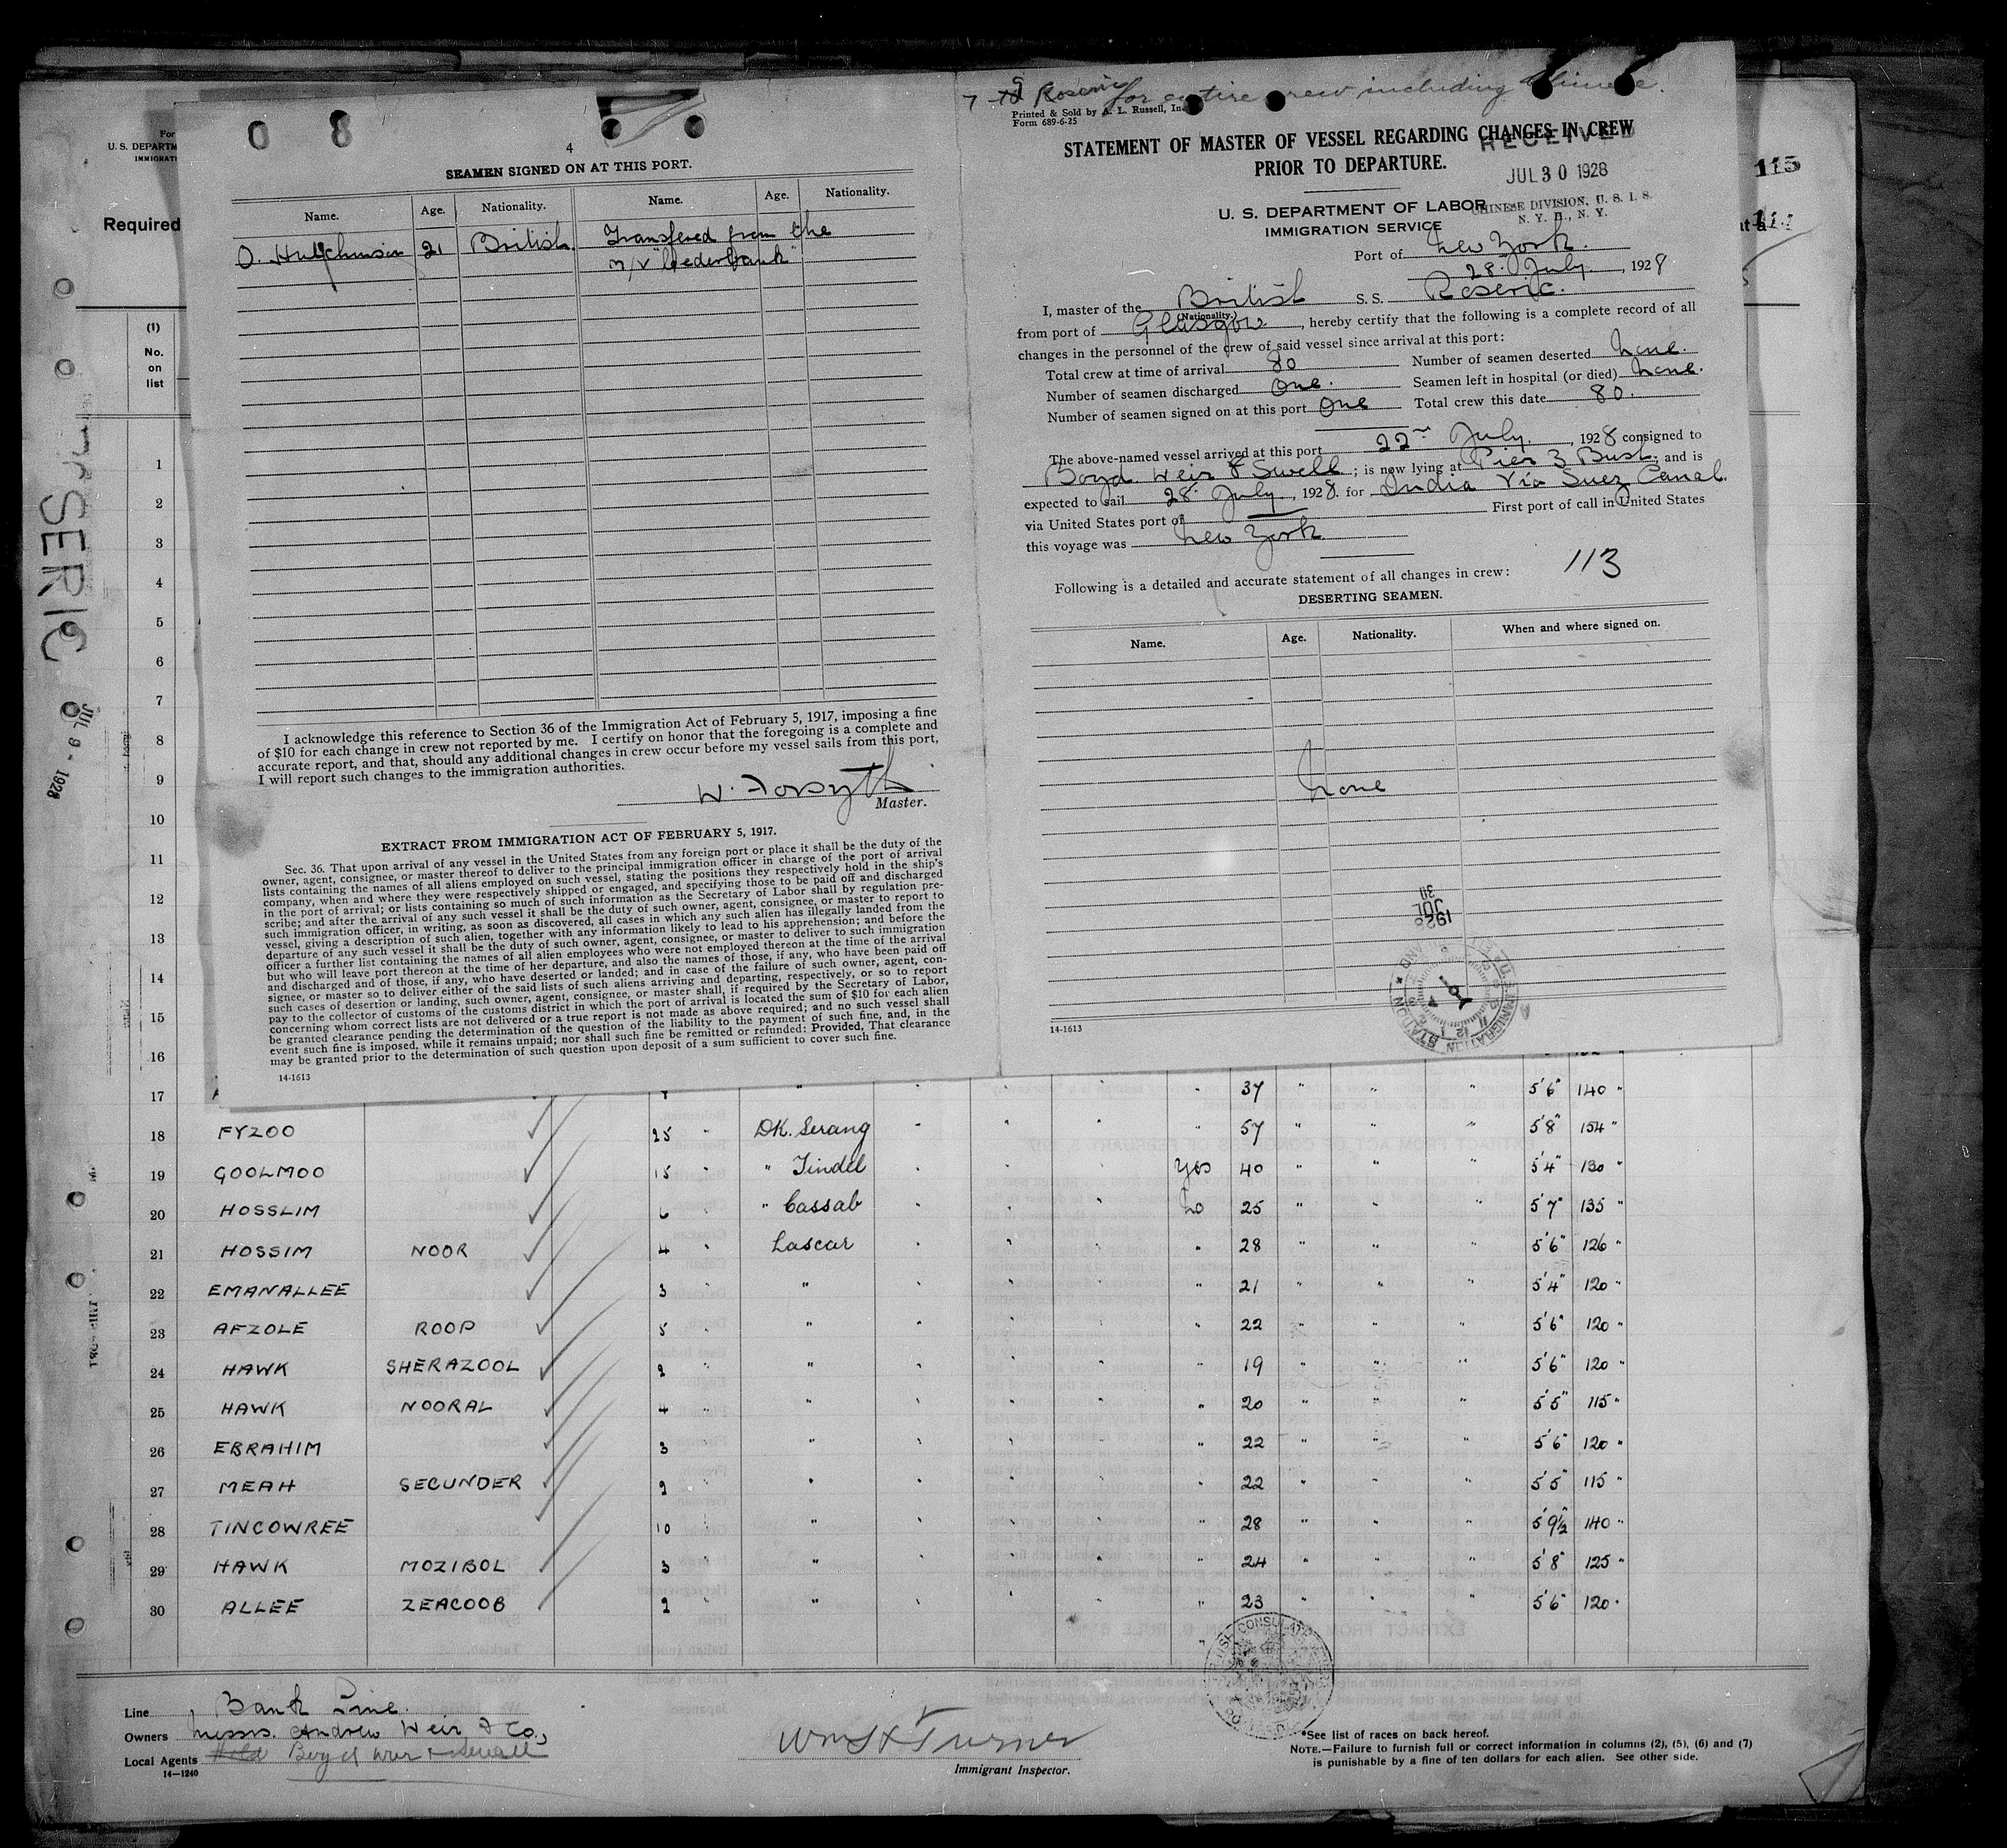 0 8
4
SEAMEN SIGNED ON AT THIS PORT.
Name. Age. Nationality. Name. Age. Nationality.
O. Hutchinson 21 British. Transfered from the
m/v
I acknowledge this reference to Section 36 of the Immigration Act of February 5, 1917, imposing a fine
of $10 for each change in crew not reported by me. I certify on honor that the foregoing is a complete and
accurate report, and that, should any additional changes in crew occur before my vessel sails from this port,
I will report such changes to the immigration authorities.
W. Forsyth
Master.
EXTRACT FROM IMMIGRATION ACT OF FEBRUARY 5, 1917.
Sec. 36. That upon arrival of any vessel in the United States from any foreign port or place it shall be the duty of the
owner, agent, consignee, or master thereof to deliver to the principal immigration officer in charge of the port of arrival
lists containing the names of all aliens employed on such vessel, stating the positions they respectively hold in the ship's
company, when and where they were respectively shipped or engaged, and specifying those to be paid off and discharged
in the port of arrival; or lists containing so much of such information as the Secretary of Labor shall by regulation pre-
scribe; and after the arrival of any such vessel it shall be the duty of such owner, agent, consignee, or master to report to
such immigration officer, in writing, as soon as discovered, all cases in which any such alien has illegally landed from the
vessel, giving a description of such alien, together with any information likely to lead to his apprehension; and before the
departure of any such vessel it shall be the duty of such owner, agent, consignee, or master to deliver to such immigration
officer a further list containing the names of all alien employees who were not employed thereon at the time of the arrival
but who will leave port thereon at the time of her departure, and also the names of those, if any, who have been paid off
and discharged and of those, if any, who have deserted or landed; and in case of the failure of such owner, agent, con-
signee, or master so to deliver either of the said lists of such aliens arriving and departing, respectively, or so to report
such cases of desertion or landing, such owner, agent, consignee, or master shall, if required by the Secretary of Labor,
pay to the collector of customs of the customs district in which the port of arrival is located the sum of $10 for each alien
concerning whom correct lists are not delivered or a true report is not made as above required; and no such vessel shall
be granted clearance pending the determination of the question of the liability to the payment of such fine, and, in the
event such fine is imposed, while it remains unpaid; nor shall such fine be remitted or refunded: Provided, That clearance
may be granted prior to the determination of such question upon deposit of a sum sufficient to cover such fine.
14-1613
Roseric for entire crew including Chinese.
Printed & Sold by A. L. Russell, Inc
Form 689-6-25
STATEMENT OF MASTER OF VESSEL REGARDING CHANGES IN CREW
PRIOR TO DEPARTURE.
RECEIVED
JUL 30 1928
CHINESE DIVISION, U. S. I. S.
N. Y. H., N. Y.
U. S. DEPARTMENT OF LABOR
IMMIGRATION SERVICE
Port of New York.
28. July, 1928
I, master of the British S. S. Roseric.
(Nationality.)
from port of Glasgow, hereby certify that the following is a complete record of all
changes in the personnel of the crew of said vessel since arrival at this port:
Total crew at time of arrival 80 Number of seamen deserted None.
Number of seamen discharged One. Seamen left in hospital (or died) None.
Number of seamen signed on at this port One Total crew this date 80.
The above-named vessel arrived at this port 22nd July, 1928 consigned to
Boyd. Weir & Swell; is now lying at Pier 3 Bush, and is
expected to sail 28. July, 1928. for India Via Suez Canal.
via United States port of First port of call in United States
this voyage was New York
113
Following is a detailed and accurate statement of all changes in crew:
DESERTING SEAMEN.
Name. Age. Nationality. When and where signed on.
None
1928
JUL
30
U. S. IMMIGRATION STATION
14-1613
U. S. DEPARTM
IMMIGRATI
Required
115
(1)
No.
on
list
SERIC
JUL 9 - 1928
1
2
3
4
5
6
7
8
9
10
11
12
13
14
15
16
17 37 " " " 5'6" 140 "
18 FYZOO 25 " DK. Serang " " " " 57 " " " 5'8" 154 "
19 GOOLMOO 15 " " Tindel " " " Yes 40 " " " 5'4" 130 "
20 HOSSLIM 6 " " Cassab " " " No 25 " " " 5'7" 135 "
21 HOSSIM NOOR 4 " Lascar " " " " 28 " " " 5'6" 126 "
22 EMANALLEE 3 " " " " " " 21 " " " 5'4" 120 "
23 AFZOLE ROOP 5 " " " " " " 22 " " " 5'6" 120 "
24 HAWK SHERAZOOL 2 " " " " " " 19 " " " 5'6" 120 "
25 HAWK NOORAL 4 " " " " " " 20 " " " 5'5" 115 "
26 EBRAHIM 3 " " " " " " 22 " " " 5'6" 120 "
27 MEAH SECUNDER 2 " " " " " " 22 " " " 5'5" 115 "
28 TINCOWREE 10 " " " " " " 28 " " " 5'9½" 140 "
29 HAWK MOZIBOL 3 " " " " " " 24 " " " 5'8" 125 "
30 ALLEE ZEACOOB 2 " " " " " " 23 " " " 5'6" 120 "
Line Bank Line.
Owners Messrs. Andrew Weir & Co.,
Local Agents Boyd Weir & Sewall
14-1240
Wm H Turner
Immigrant Inspector.
*See list of races on back hereof.
NOTE.—Failure to furnish full or correct information in columns (2), (5), (6) and (7)
is punishable by a fine of ten dollars for each alien. See other side.